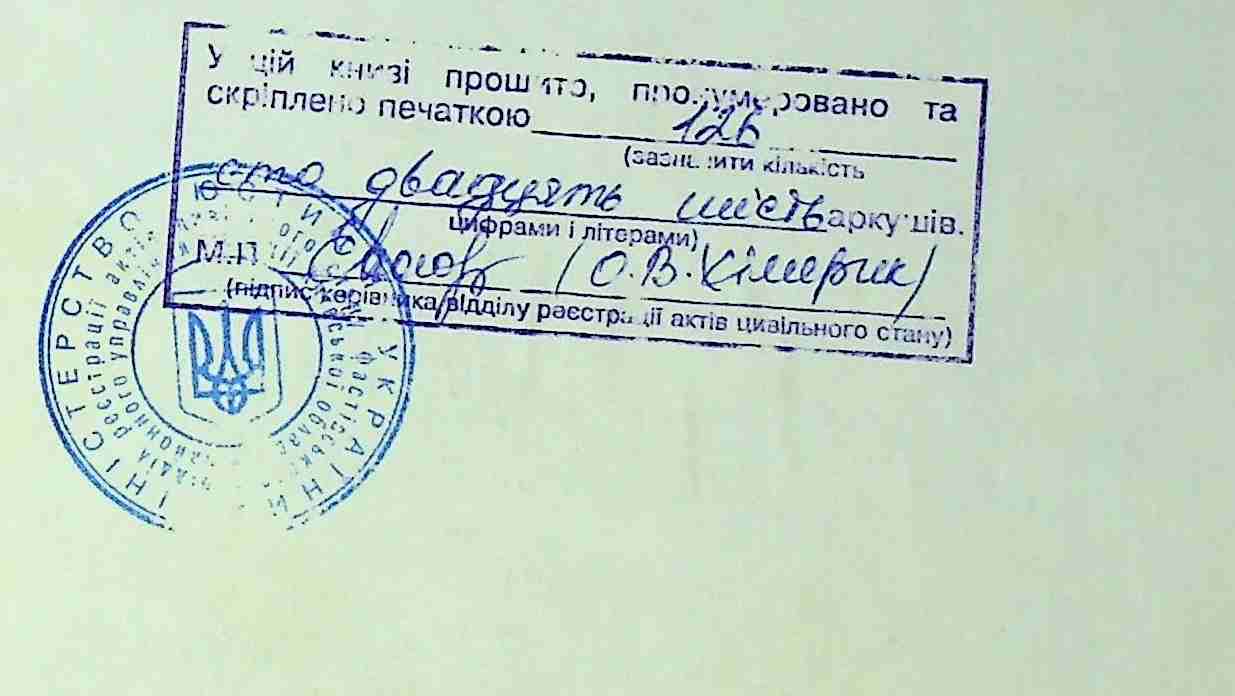 У цій книзі прошито, пронумеровано та
скріплено печаткою 126
(зазначити кількість
сто двадцять шість аркушів.
цифрами і літерами)
М.П. (О.В. Хімерик)
(підпис керівника відділу реєстрації актів цивільного стану)
МІНІСТЕРСТВО ЮСТИЦІЇ УКРАЇНИ
реєстрації актів
управління